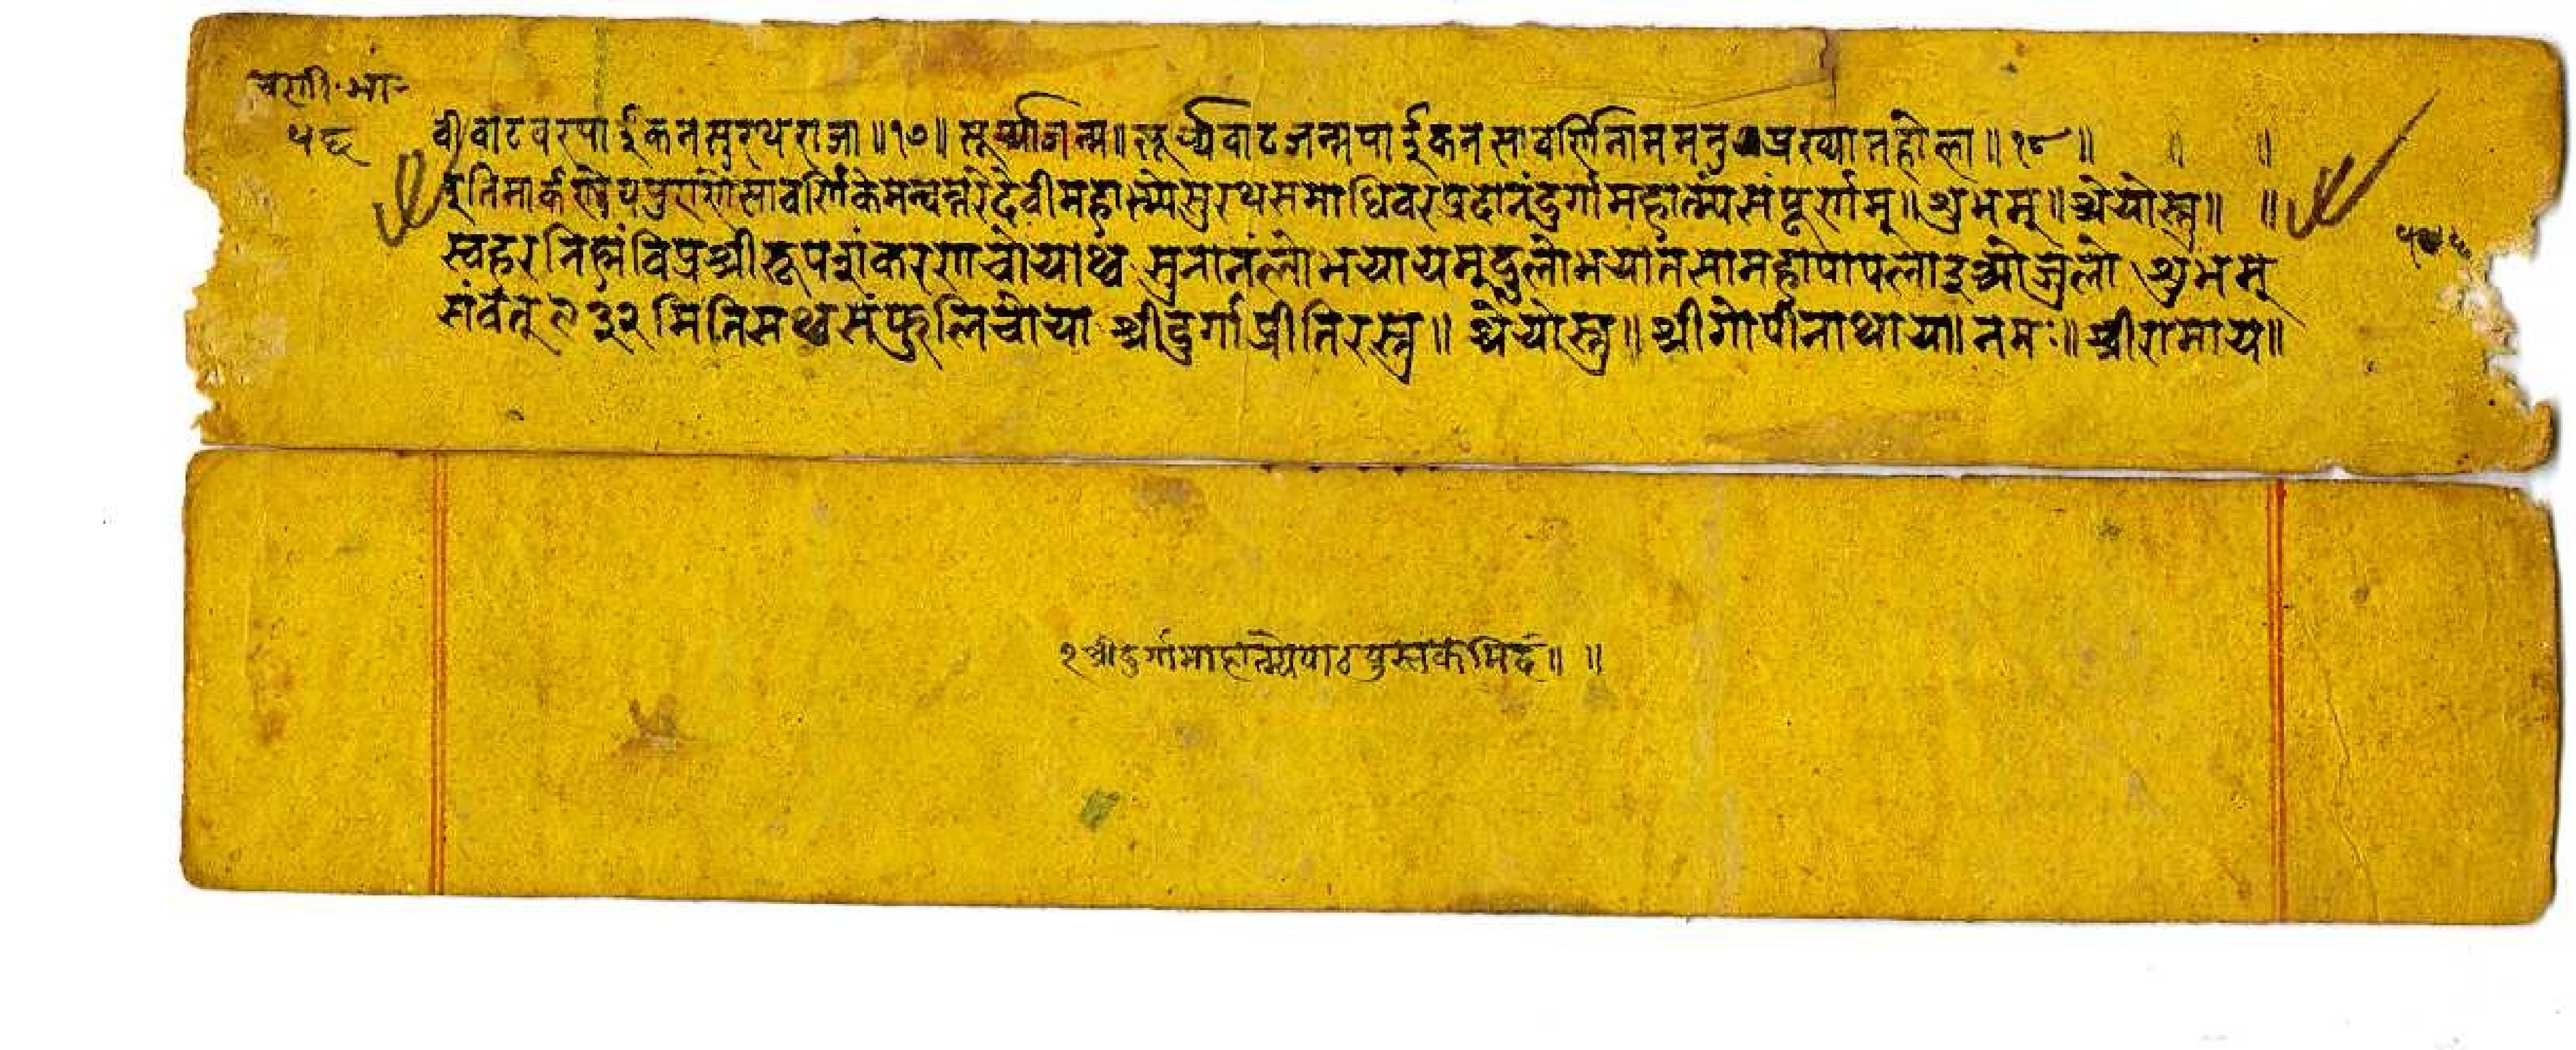 चण्डी॰ भा॰
५६
वी वाट वर पाईकन सुरथ राजा ॥ १७ ॥ सूर्य्याजन्म ॥ सूर्य्य वाट जन्म पाईकन सावर्णिनाम मनु प्रख्यात होला ॥ १८ ॥ ॥ ॥
इति मार्कण्डेयपुराणे सावर्णिके मन्वन्तरे देवीमहात्म्ये सुरथसमाधिवरप्रदानं दुर्गामहात्म्यं संपूर्णम् ॥ शुभम् ॥ श्रेयोस्तु ॥ ॥
विप्रश्री चोया थ्व सुनानं लोभयाय मदु लोभयातसा महापाप लाइओ जुलो शुभम्
संवत् ९३२ मिति चोया श्रीदुर्गाप्रीतिरस्तु ॥ श्रेयोस्तु ॥ श्रीगोपीनाथाय ॥ नमः ॥ श्रीरामाय ॥
१ श्रीदुर्गामाहात्म्येपाठपुस्तकमिदं ॥ ॥